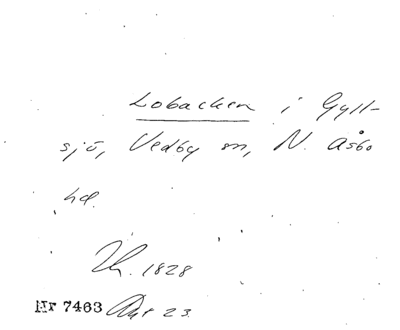 Lobacken i Gyll-
sjö, Vedby sn, N. Åsbo
hd.
Th. 1828
Nr 7463 Akt 23.